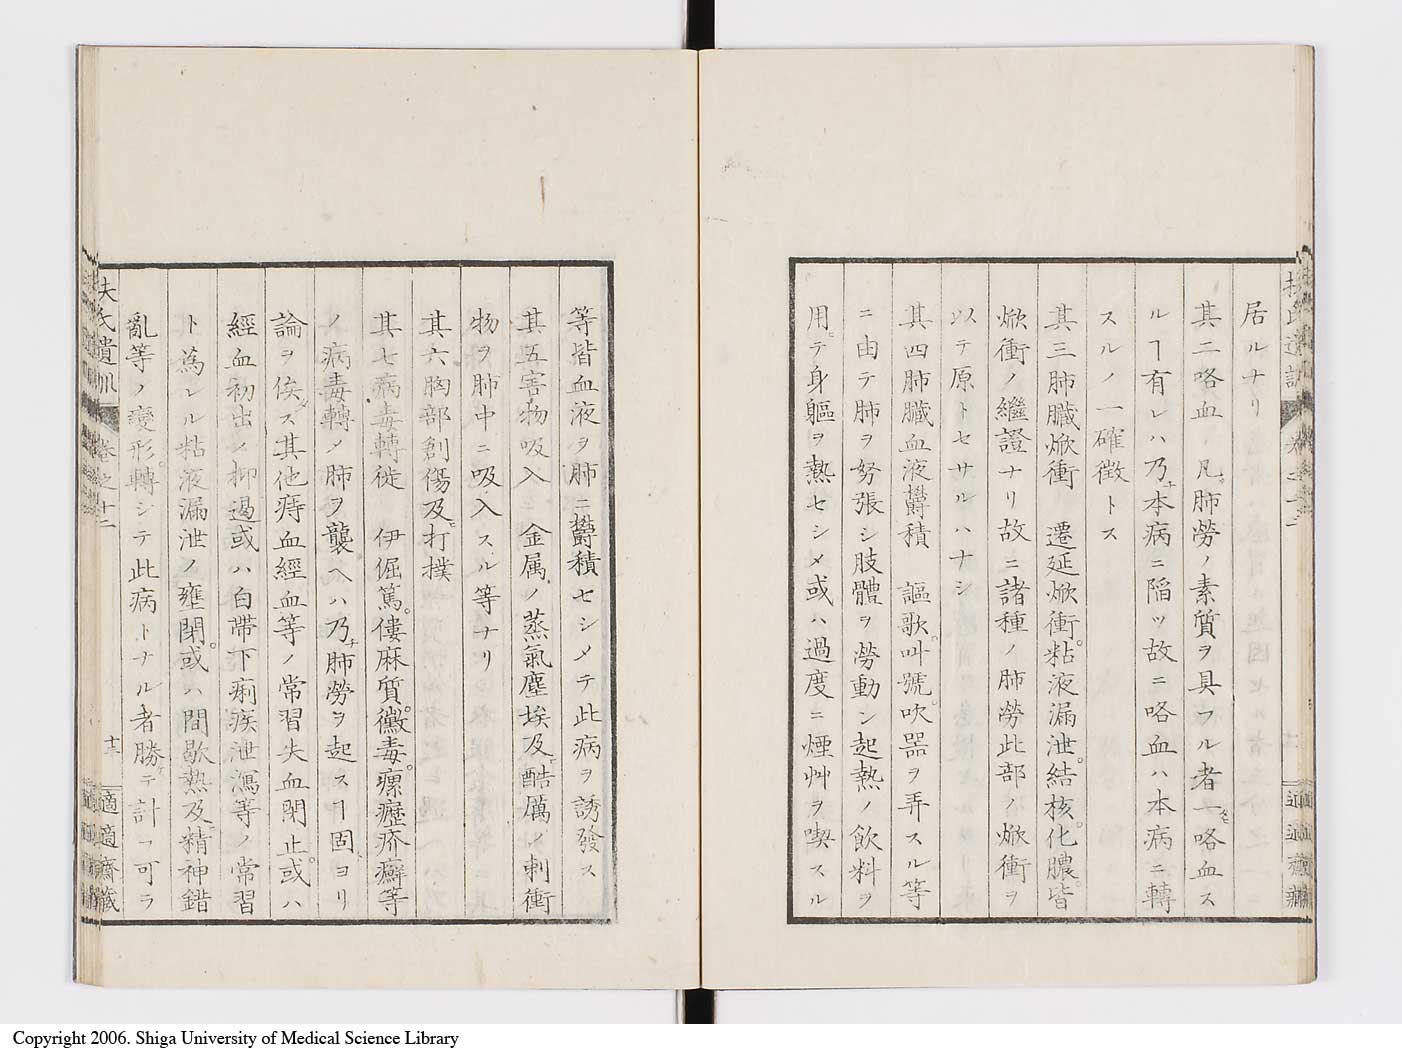 居ルナリ
其二咯血 凡肺勞ノ素質ヲ具フル者一咯血ス
ルヿ有レハ乃チ本病ニ陷ツ故ニ咯血ハ本病ニ轉
スルノ一確徴トス
其三肺臓焮衝 遷延焮衝。粘液漏泄。結核。化膿。皆
焮衝ノ繼證ナリ故ニ諸種ノ肺勞此部ノ焮衝ヲ
以テ原トセサルハナシ
其四肺臓血液欝積 謳歌。叫號。吹器ヲ弄スル等
ニ由テ肺ヲ努張シ肢體ヲ勞動シ起熱ノ飲料ヲ
用ヒテ身軀ヲ熱セシメ或ハ過度ニ煙艸ヲ喫スル
等皆血液ヲ肺ニ欝積セシメテ此病ヲ誘發ス
其五害物吸入 金属ノ蒸氣塵埃及ヒ酷厲ノ刺衝
物ヲ肺中ニ吸入スル等ナリ
其六胸部創傷及ヒ打撲
其七病毒轉徙 伊倔篤。僂麻質。黴毒。瘰癧疥癬等
ノ病毒轉シ肺ヲ襲ヘハ乃チ肺勞ヲ起スヿ固ヨリ
論ヲ俟タス其他痔血經血等ノ常習失血閉止。或ハ
經血初出ノ抑遏或ハ白帶下痢疾泄瀉等ノ常習
ト爲レル粘液漏泄ノ壅閉。或ハ間歇熱及ヒ精神錯
亂等ノ變形。轉シテ此病トナル者勝テ計フ可ラ
扶氏遺訓 卷之十二 十六 適適齋藏